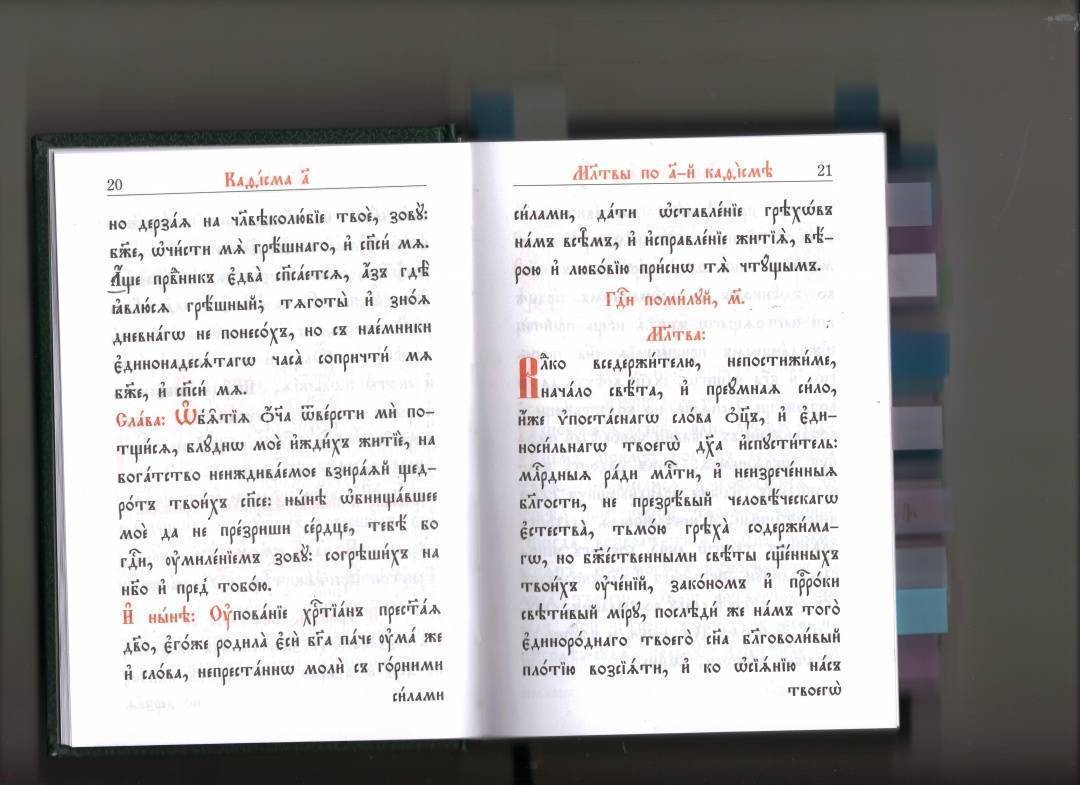 20
Каѳі́сма а҃
но дерза́ѧ на чл҃вѣколю́бїе твоѐ, зовꙋ̀:
бж҃е, ѡ҆чи́сти мѧ̀ грѣ́шнаго, и҆ сп҃си́ мѧ.
А҆́ще првⷣникъ є҆два̀ сп҃са́етсѧ, а҆́зъ гдѣ̀
ꙗ҆влю́сѧ грѣ́шный; тѧготы̀ и҆ зно́ѧ
дневна́гѡ не понесо́хъ, но съ нае́мники
є҆динонадесѧ́тагѡ часа̀ сопричти́ мѧ
бж҃е, и҆ сп҃си́ мѧ.
Сла́ва: Ѡ҆б̾ѧ̑тїѧ ѻ҆́ч҃а ѿве́рсти мѝ по-
тщи́сѧ, блꙋ́днѡ моѐ и҆жди́хъ житїѐ, на
бога́тство неиждива́емое взира́ѧй щед-
ро́тъ твои́хъ сп҃се: ны́нѣ ѡ҆бнища́вшее
моѐ да не пре́зриши се́рдце, тебѣ́ бо
гдⷭ҇и, ᲂу҆миле́нїемъ зовꙋ̀: согрѣши́хъ на
нб҃о и҆ пред̾ тобо́ю.
И҆ ны́нѣ: Оу҆пова́нїе хрⷭ҇тїа́нъ прест҃а́ѧ
дв҃о, є҆го́же родила̀ є҆сѝ бг҃а па́че ᲂу҆ма́ же
и҆ сло́ва, непреста́ннѡ молѝ съ го́рними
си́лами
Мл҃твы по а҃-й каѳі́смѣ
21
си́лами, да́ти ѡ҆ставле́нїе грѣхѡ́въ
на́мъ всѣ̑мъ, и҆ и҆справле́нїе житїѧ̀, вѣ́-
рою и҆ любо́вїю при́снѡ тѧ̀ чтꙋ́щымъ.
Гдⷭ҇и поми́лꙋй, м҃.
Мл҃тва:
Влⷣко вседержи́телю, непостижи́ме,
нача́ло свѣ́та, и҆ преꙋ́мнаѧ си́ло,
и҆́же ᲂу҆поста́снагѡ сло́ва ѻ҆ц҃ъ, и҆ є҆ди-
носи́льнагѡ твоегѡ̀ дх҃а и҆спꙋсти́тель:
млⷭ҇рдныѧ ра́ди млⷭ҇ти, и҆ неизрече́нныѧ
бл҃гости, не презрѣ́вый человѣ́ческагѡ
є҆стества̀, тьмо́ю грѣха̀ содержи́ма-
гѡ, но бж҃е́ственными свѣ̑ты сщ҃е́нныхъ
твои́хъ ᲂу҆че́нїй, зако́номъ и҆ прⷪ҇рѡ́ки
свѣти́вый мі́рꙋ, послѣди́ же на́мъ того̀
є҆диноро́днаго твоего̀ сн҃а бл҃говоли́вый
пло́тїю возсїѧ́ти, и҆ ко ѡ҆сїѧ́нїю на́съ
твоегѡ̀